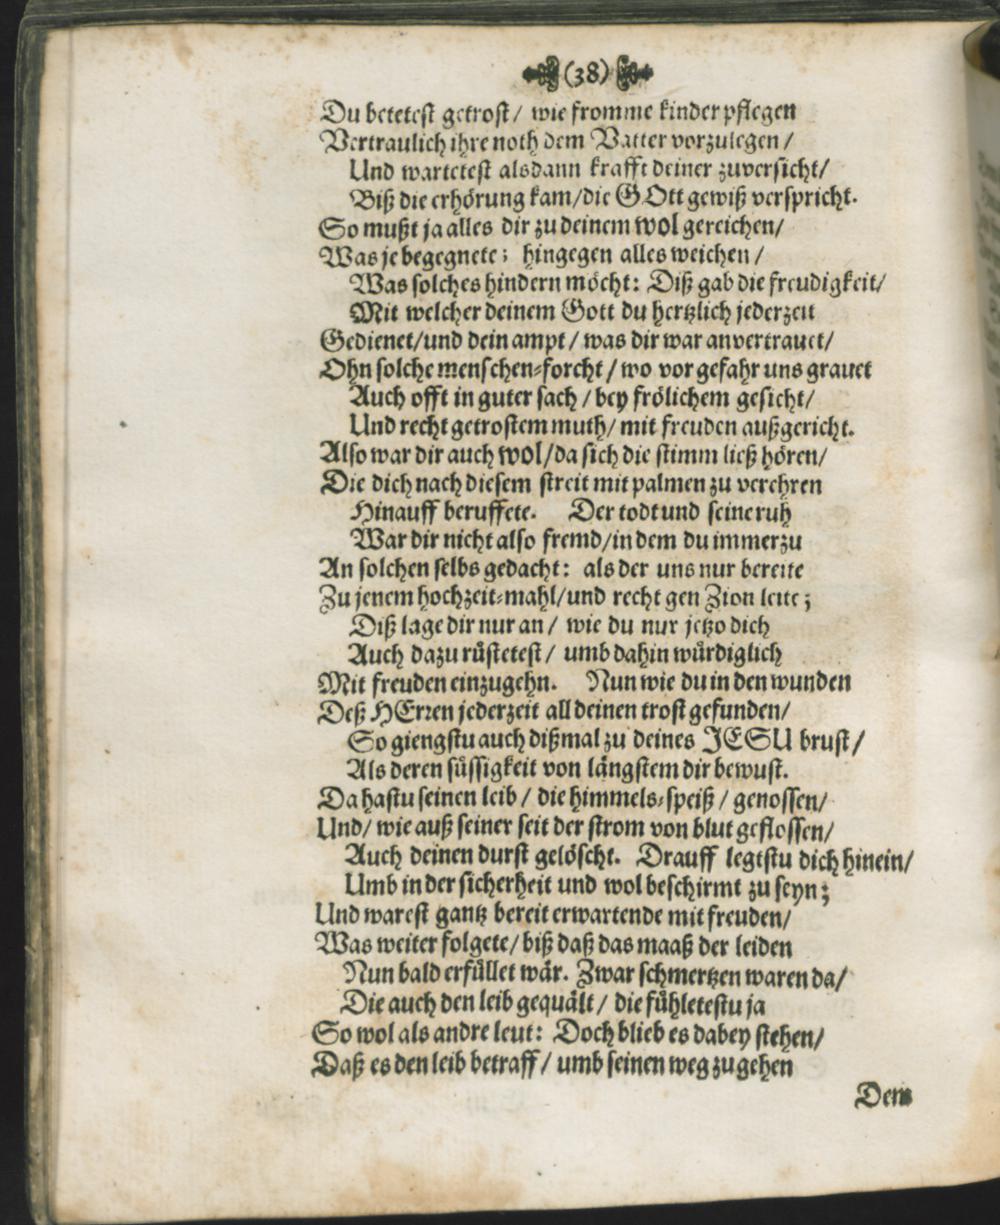 (38)
Du betetest getrost/ wie fromme kinder pflegen
Vertraulich ihre noth dem Vatter vorzulegen/
Und wartetest alsdann krafft deiner zuversicht/
Biß die erhörung kam/die GOtt gewiß verspricht.
So mußt ja alles dir zu deinem wol gereichen/
Was je begegnete; hingegen alles weichen/
Was solches hindern möcht: Diß gab die freudigkeit/
Mit welcher deinem Gott du hertzlich jederzeit
Gedienet/und dein ampt/ was dir war anvertrauet/
Ohn solche menschen-forcht/ wo vor gefahr uns grauet
Auch offt in guter sach/ bey frölichem gesicht/
Und recht getrostem muth/ mit freuden außgericht.
Also war dir auch wol/da sich die stimm ließ hören/
Die dich nach diesem streit mit palmen zu verehren
Hinauff beruffete. Der todt und seine ruh
War dir nicht also fremd/in dem du immerzu
An solchen selbs gedacht: als der uns nur bereite
Zu jenem hochzeit-mahl/und recht gen Zion leite;
Diß lage dir nur an/ wie du nur jetzo dich
Auch dazu rüstetest/ umb dahin würdiglich
Mit freuden einzugehn. Nun wie du in den wunden
Deß HErren jederzeit all deinen trost gefunden/
So giengstu auch dißmal zu deines JESU brust/
Als deren süssigkeit von längstem dir bewust.
Da hastu seinen leib/ die himmels-speiß/ genossen/
Und/ wie auß seiner seit der strom von blut geflossen/
Auch deinen durst gelöscht. Drauff legtstu dich hinein/
Umb in der sicherheit und wol beschirmt zu seyn;
Und warest gantz bereit erwartende mit freuden/
Was weiter folgete/ biß daß das maaß der leiden
Nun bald erfüllet wär. Zwar schmertzen waren da/
Die auch den leib gequält/ die fühletestu ja
So wol als andre leut: Doch blieb es dabey stehen/
Daß es den leib betraff/ umb seinen weg zu gehen
Dem